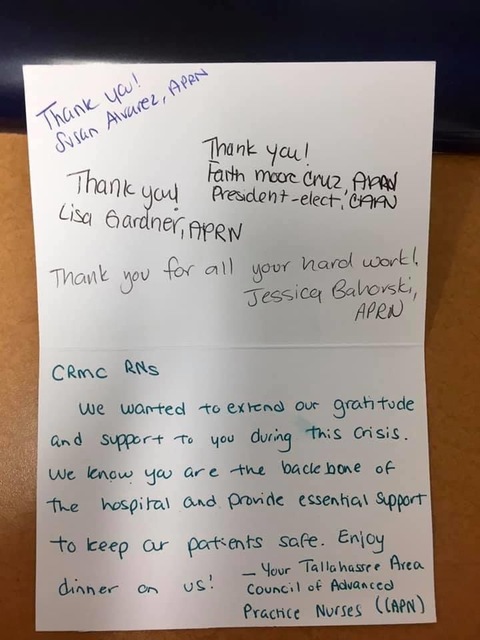 Thank you!
Susan Alvarez, APRN
Thank you!
Faith Moore Cruz, APRN
President-elect, CAPN
Thank you!
Lisa Gardner, APRN
Thank you for all your hard work!
Jessica Bahorski,
APRN
CRMC RNs
We wanted to extend our gratitude
and support to you during this crisis.
We know you are the backbone of
the hospital and provide essential support
to keep our patients safe. Enjoy
dinner on us!
— Your Tallahassee Area
Council of Advanced
Practice Nurses (CAPN)